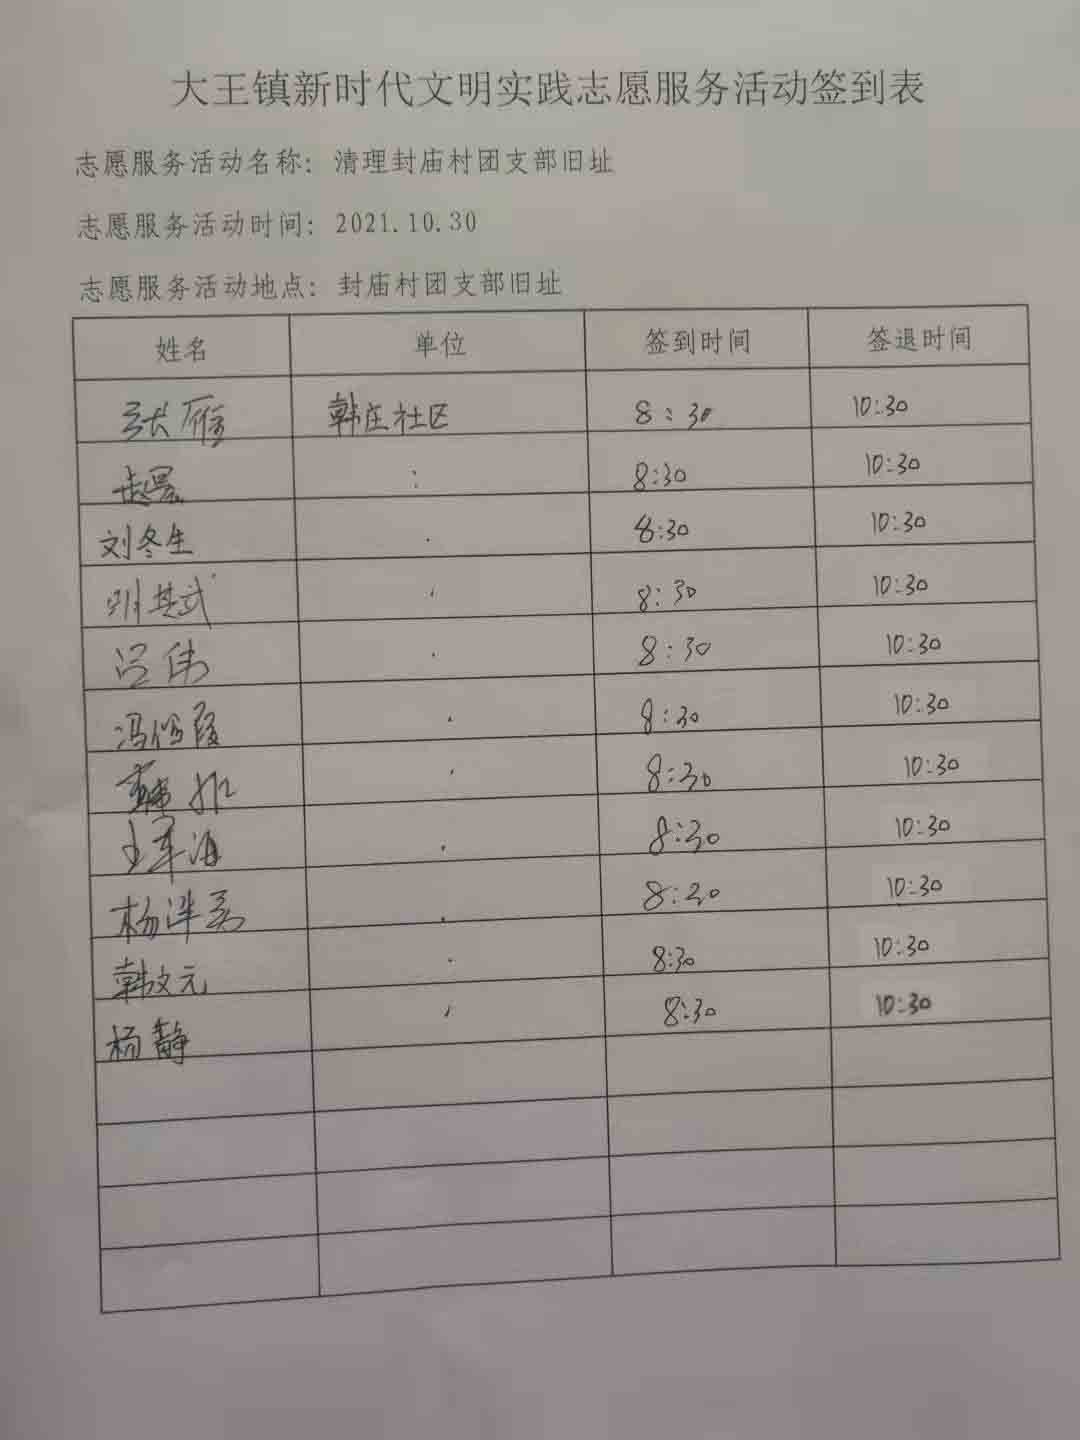 大王镇新时代文明实践志愿服务活动签到表
志愿服务活动名称：清理封庙村团支部旧址
志愿服务活动时间：2021.10.30
志愿服务活动地点：封庙村团支部旧址
姓名 单位 签到时间 签退时间
张雁 韩庄社区 8:30 10:30
8:30 10:30
刘冬生 8:30 10:30
明其武 8:30 10:30
吕伟 8:30 10:30
冯保霞 8:30 10:30
韩 8:30 10:30
王军海 8:30 10:30
杨泮美 8:30 10:30
韩文元 8:30 10:30
杨静 8:30 10:30